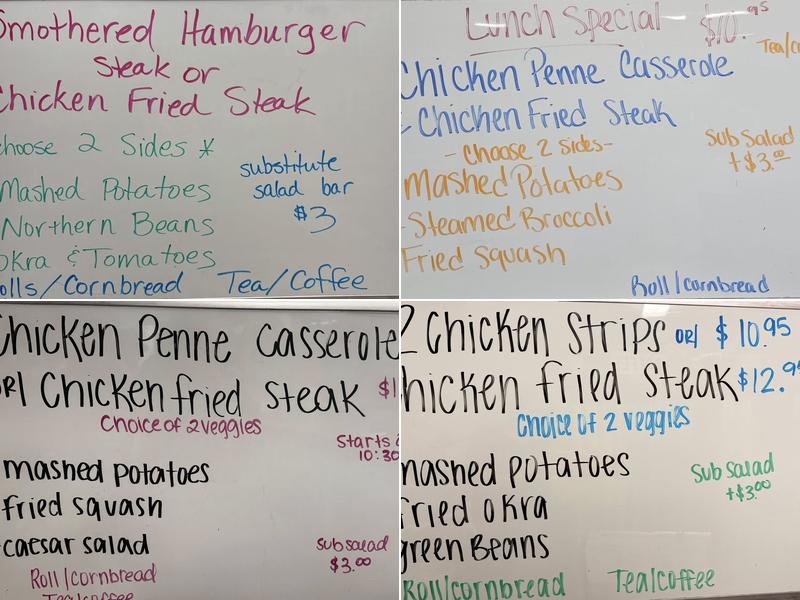 Smothered Hamburger
Steak or
Chicken Fried Steak
Choose 2 Sides *
Mashed Potatoes
Northern Beans
Okra & Tomatoes
olls/Cornbread
substitute
salad bar
$3
Tea/Coffee
Lunch Special $10.95
Tea/co
Chicken Penne Casserole
Chicken Fried Steak
- Choose 2 Sides-
Mashed Potatoes
-Steamed Broccoli
Fried Squash
Sub Salad
+$3.00
Roll/cornbread
Chicken Penne Casserole
OR/ Chicken fried steak $1
Choice of 2 veggies
Starts
10:30
mashed potatoes
fried squash
caesar salad
Sub salad
$3.00
Roll/cornbread
Tea/coffee
2 Chicken Strips OR/ $10.95
hicken fried steak $12.9
Choice of 2 veggies
mashed potatoes
fried okra
green Beans
Sub Salad
+$3.00
Roll/cornbread Tea/coffee